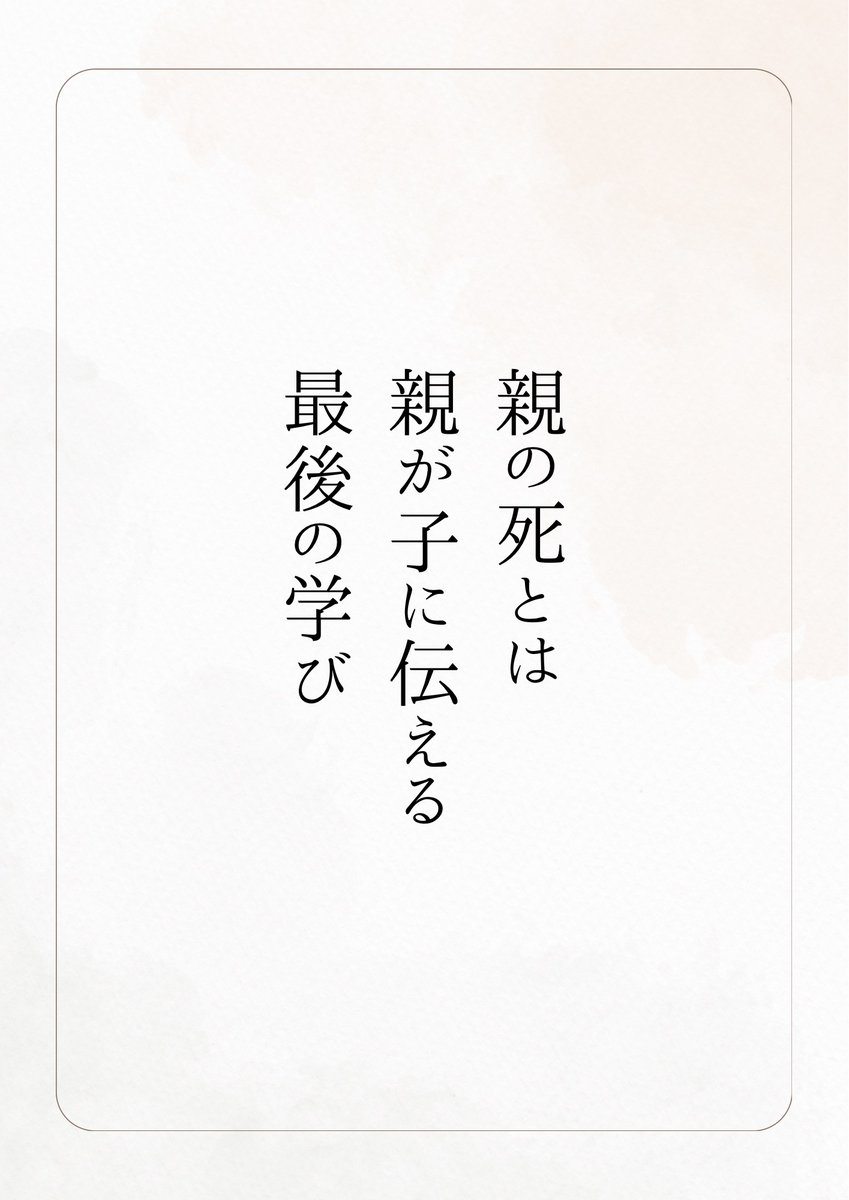 親の死とは
親が子に伝える
最後の学び